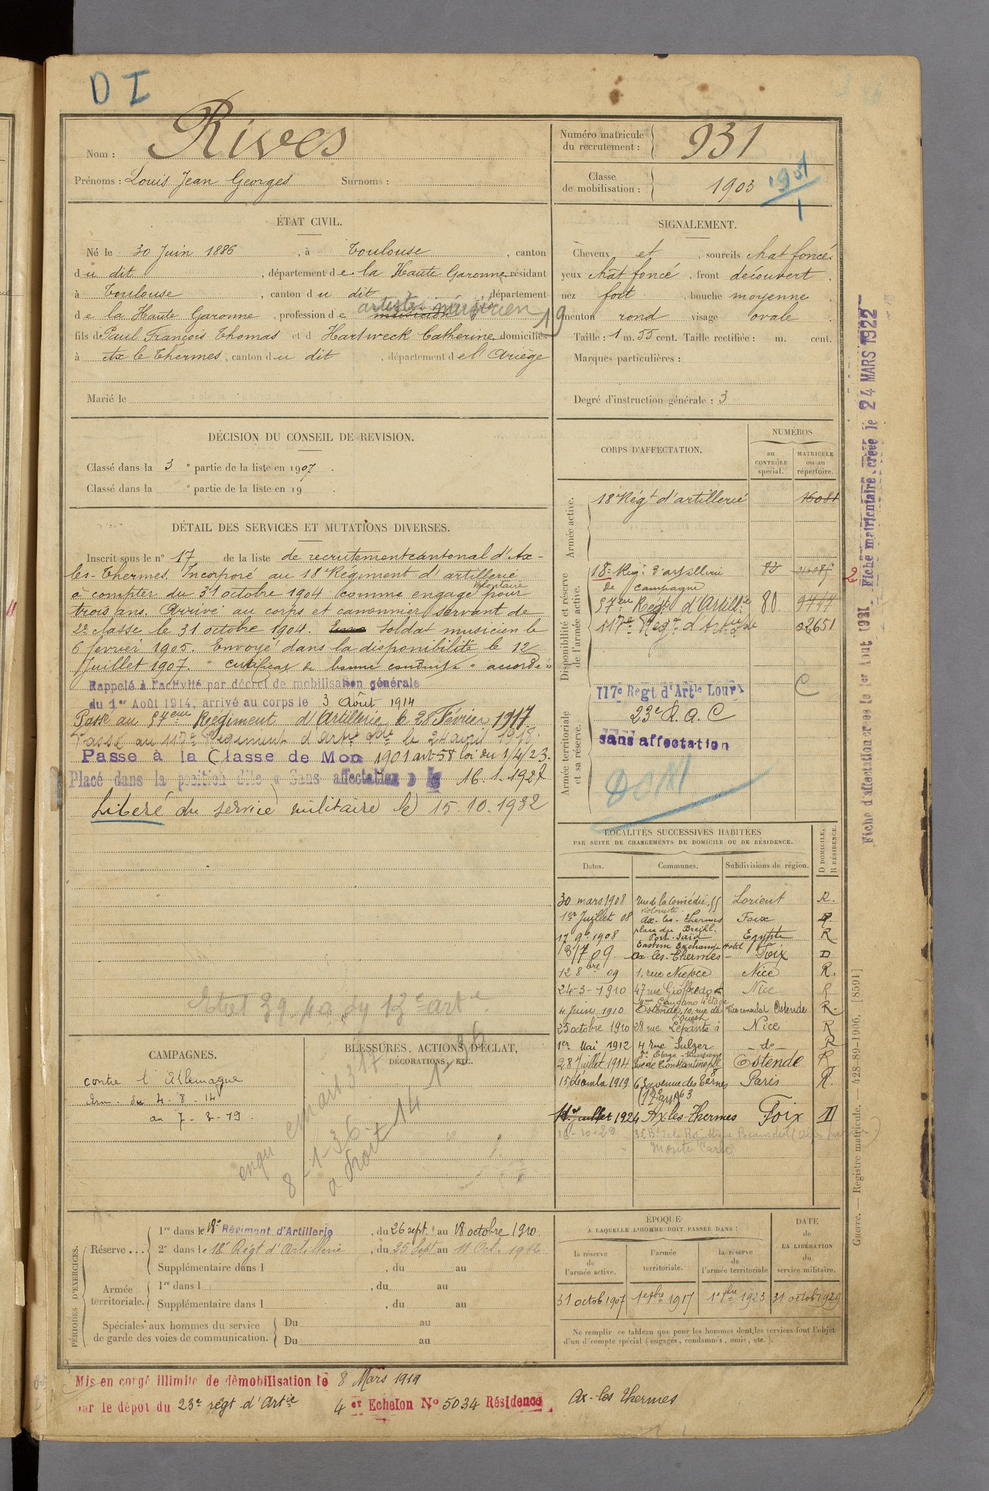 D I
Nom : Rives
Prénoms : Louis Jean Georges Surnoms :
Numéro matricule du recrutement : 931
Classe de mobilisation : 1903 1901
ÉTAT CIVIL.
Né le 30 Juin 1886, à Toulouse, canton
du dit, département de la Haute Garonne, résidant
à Toulouse, canton du dit, département
de la Haute Garonne, profession de artiste musicien
fils de Paul François Thomas et d Hartweck Catherine, domiciliés
à Ax les Thermes, canton du dit, département de l'Ariège
Marié le
SIGNALEMENT.
Cheveux et, sourcils chat foncé.
yeux chat foncé, front découvert
nez fort, bouche moyenne
menton rond visage ovale
Taille : 1 m. 55 cent. Taille rectifiée : m. cent.
Marques particulières :
Degré d'instruction générale : 3
DÉCISION DU CONSEIL DE REVISION.
Classé dans la 3e partie de la liste en 1907.
Classé dans la e partie de la liste en 19
DÉTAIL DES SERVICES ET MUTATIONS DIVERSES.
Inscrit sous le n° 17 de la liste de recrutement cantonal d'Ax-
les-Thermes. Incorporé au 18e Régiment d'artillerie
à compter du 31 octobre 1904 comme engagé volontaire pour
trois ans. Arrivé au corps et canonnier servant de
2e classe le 31 octobre 1904. soldat musicien le
6 février 1905. Envoyé dans la disponibilité le 12
Juillet 1907. "Certificat de bonne conduite" accordé
Rappelé à l'activité par décret de mobilisation générale
du 1er Août 1914, arrivé au corps le 3 Août 1914
Passé au 57eme Régiment d'Artillerie le 28 Février 1917
Passé au 117e Régiment d'Artie le 24 avril 1918
Passé à la Classe de Mob 1901 art 58 loi du 1/4/23.
Placé dans la position dite « Sans affectation » le 16.1.1927
Libéré du service militaire le 15.10.1932
CORPS D'AFFECTATION.
NUMÉROS
au CONTRÔLE spécial.
MATRICULE ou au répertoire.
Armée active.
18e Régt d'artillerie
Disponibilité et réserve de l'armée active.
18e Reg. d'artillerie
de campagne
57eme Regt d'Artillie 80
117e Regt d'Artie
117e Regt d'Artie Lourde
23e R.A.C
C
Armée territoriale et sa réserve.
sans affectation
DOM
LOCALITÉS SUCCESSIVES HABITÉES
PAR SUITE DE CHANGEMENTS DE DOMICILE OU DE RÉSIDENCE.
Dates. Communes. Subdivisions de région. D DOMICILE, R RÉSIDENCE.
30 mars 1908 Rue de la Comédie 55 Lorient R.
1er Juillet 08 Ax-les-Thermes Foix
17 9bre 1908 Port-Saïd Egypte R
Eastern Exchange Hotel
3/7 09 Ax-les-Thermes Foix D
12 8bre 09 1, rue Niepce Nice R.
24-3-1910 47 rue Gioffredo Nice R
4 Juin 1910 Ostende, 10, rue de Vice consulat Ostende R.
25 octobre 1910 28 rue Lépante à Nice R
1er Mai 1912 4 rue Sulzer - do - R
28 Juillet 1914 Ostende R
15 décembre 1919 6 avenue des Ternes Paris R.
11 juillet 1924 Ax les Thermes Foix D
Monte Carlo
CAMPAGNES.
contre l'Allemagne
du 4-8-14
au 7-3-19.
BLESSURES, ACTIONS D'ÉCLAT,
DÉCORATIONS, ETC.
8-1-36
PÉRIODES D'EXERCICES.
Réserve... 1re dans le 18e Régiment d'Artillerie, du 26 sept. au 18 octobre 1910
2e dans le 18e Régt d'Artillerie, du 25 Sept au 11 Oct. 1912
Supplémentaire dans l, du au
Armée territoriale. 1re dans l, du au
Supplémentaire dans l, du au
Spéciales aux hommes du service de garde des voies de communication. Du au
Du au
ÉPOQUE
À LAQUELLE L'HOMME DOIT PASSER DANS :
la réserve de l'armée active. l'armée territoriale. la réserve de l'armée territoriale
DATE DE LA LIBÉRATION du service militaire.
31 octob 1907 1er 8bre 1917 1er 8bre 1923 31 octob 1929
Ne remplir ce tableau que pour les hommes dont les services font l'objet
d'un décompte spécial (engagés, condamnés, omis, etc.).
Mis en congé illimité de démobilisation le 8 Mars 1919
par le dépôt du 23e régt d'Artie 4er Echelon N° 5034 Résidence Ax-les Thermes
Fiche matriculaire créée le 24 MARS 1922
Guerre. — Registre matricule. — 428-89-1906. [8591]